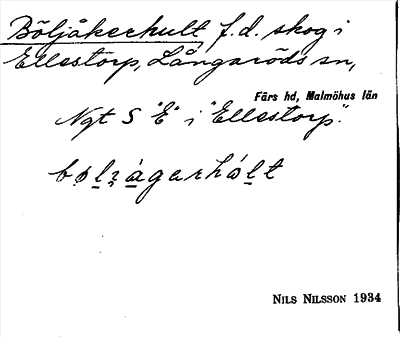 Böljåkerhult, f.d. skog i
Ellestorp, Långaröds sn,
Färs hd, Malmöhus län
Ngt S "E" i "Ellestorp".
NILS NILSSON 1934